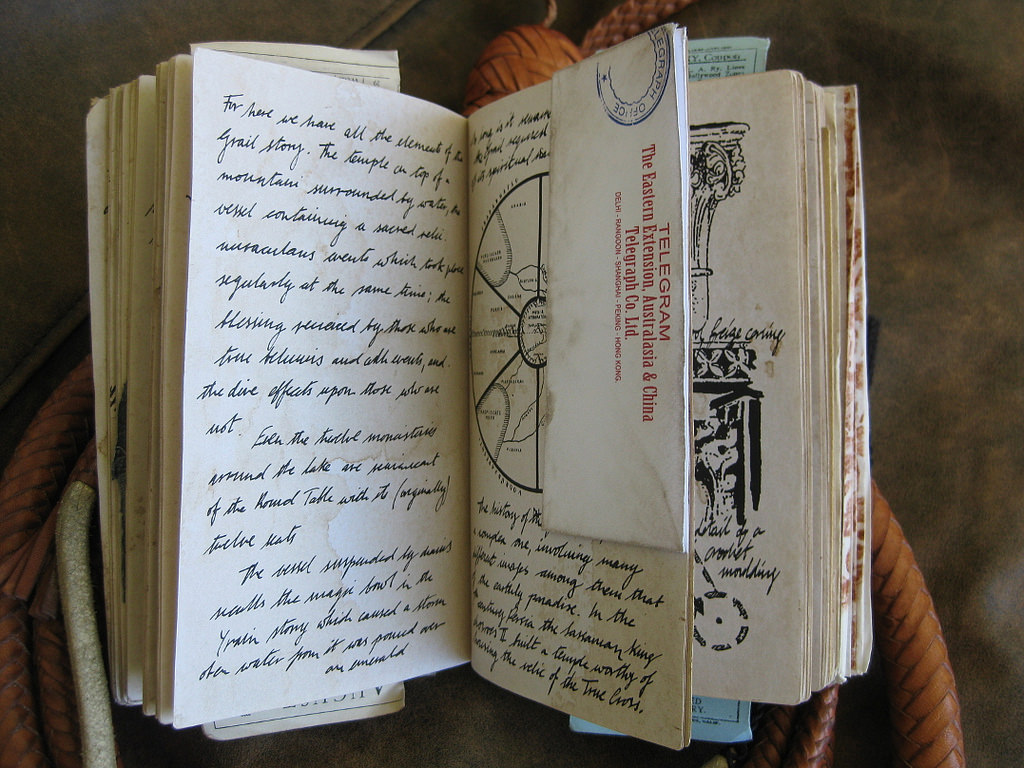 For here we have all the elements of the
Grail story. The temple on top of a
mountain surrounded by water, the
vessel containing a sacred relic,
miraculous events which took place
regularly at the same time; the
blessing received by those who are
true believers and adherents, and
the dire effects upon those who are
not.
Even the twelve monasteries
around the lake are reminiscent
of the Round Table with its (originally)
twelve seats
The vessel suspended by chains
recalls the magic bowl in the
Yvain story which caused a storm
when water from it was poured over
an emerald
the Grail required
spiritual
TELEGRAPH OFFICE
TELEGRAM
The Eastern Extension, Australasia & China
Telegraph Co. Ltd.
DELHI - RANGOON - SHANGHAI - PEKING - HONG KONG.
the history of the
complex one, involving many
different maps among them that
of the earthly paradise. In the
century Persia the Sassanian king
II built a temple worthy of
housing the relic of the True Cross.
Y. Coupon
Ry. Lines
detail of a
crocket
moulding
AUGUST